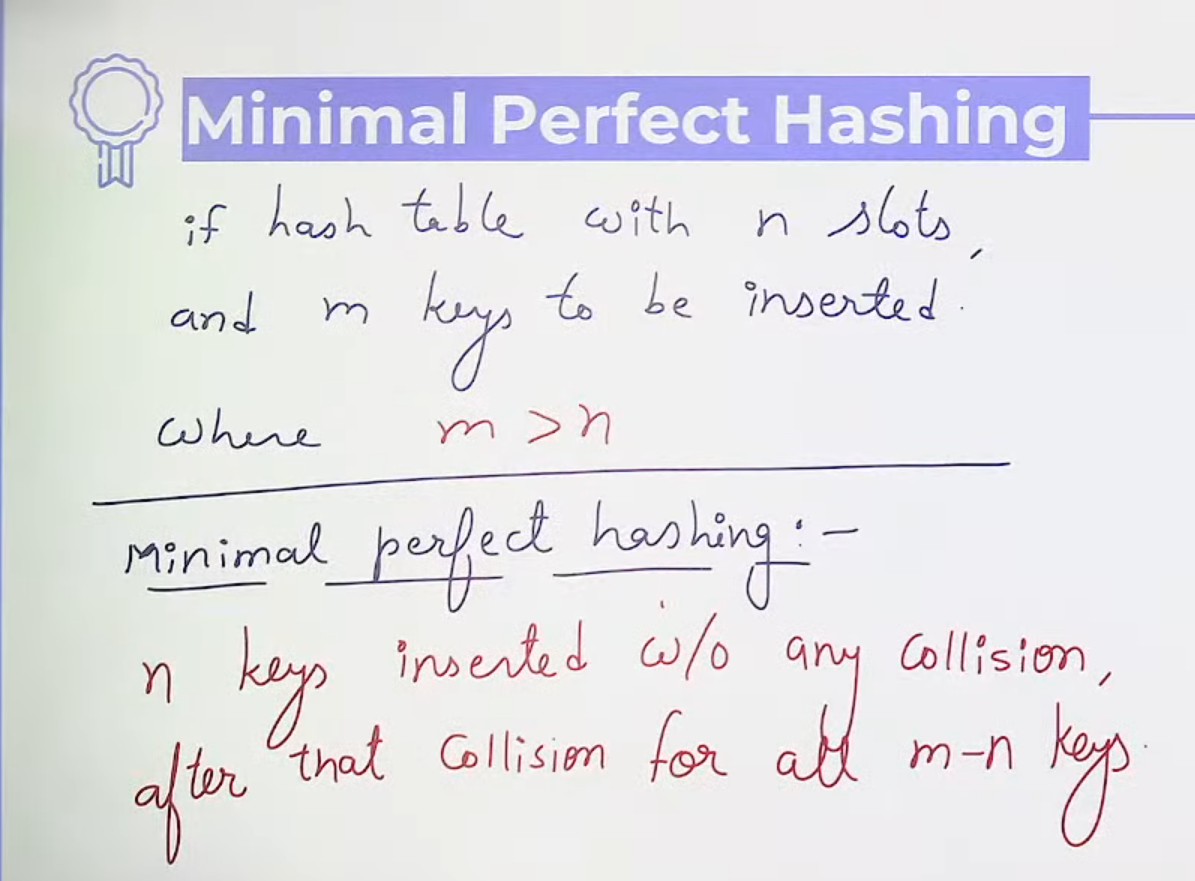 Minimal Perfect Hashing
if hash table with n slots,
and m keys to be inserted.
where m > n
Minimal perfect hashing :-
n keys inserted w/o any collision,
after that collision for all m-n keys.